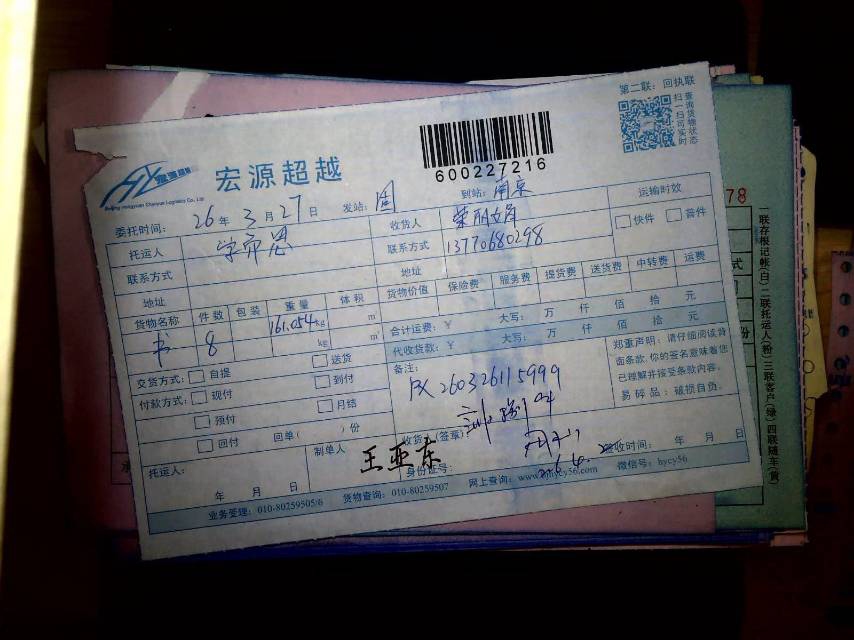 第二联：回执联
查询货物状态
扫一扫可实时
宏源超越
600227216
委托时间：26年3月27日 发站： 到站：南京
托运人
收货人
运输时效
联系方式
联系方式 13770680298
快件 普件
地址
地址
货物名称 件数 包装 重量 体积 货物价值 保险费 服务费 提货费 送货费 中转费 运费
书 8 161.054kg m³
kg m³
合计运费：￥ 大写： 万 仟 佰 拾 元
代收货款：￥ 大写： 万 仟 佰 拾 元
交货方式： 自提 送货
备注：
郑重声明：请仔细阅读背
面条款，你的签名意味着您
已理解并接受条款内容。
易碎品：破损自负。
付款方式： 现付 到付
260326115999
预付 月结
回付 回单（ ）份
托运人：
制单人
王亚东
收货人（签章）
身份证号：
签收时间： 年 月 日
年 月 日
业务受理：010-80259505/6 货物查询：010-80259507 网上查询：www.bjhycy56.com 微信号：hycy56
78
一联存根记帐(白)二联托运人(粉)三联客户(绿)四联随车(黄)